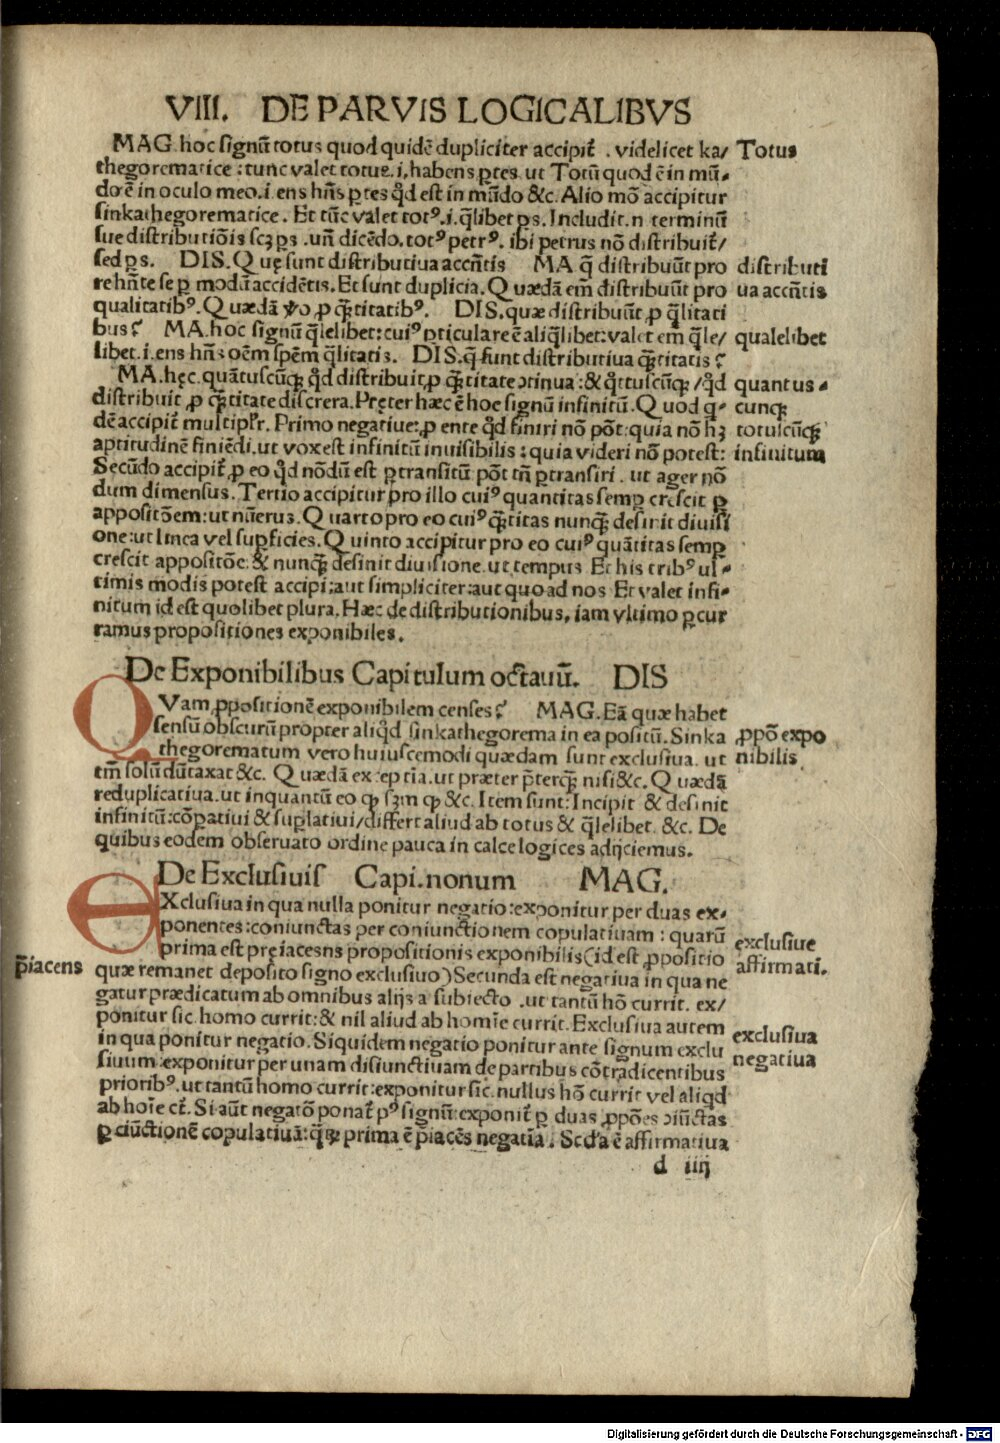 VIII. DE PARVIS LOGICALIBVS
MAG hoc signũ totus quod quidẽ dupliciter accipit̃ . videlicet ka/ Totus
thegorematice : tunc valet totus .i. habens ꝑtes. ut Totũ quod ẽ in mũ-
do ẽ in oculo meo .i ens hñs ꝑtes ꝗd est in mũdo &c. Alio mõ accipitur
sinkathegorematice. Et tũc valet totꝰ .i. q̃libet ps. Includit .n terminũ
sue distributiõis scꝫ ps . uñ dicẽdo. totꝰ petrꝰ . ibi petrus nõ distribuit̃/
sed ps. DIS. Quę sunt distributiua accñtis MA q̃ distribuũt pro distributi
re hñte se ꝑ modũ accidẽtis. Et sunt duplicia. Quædã em̃ distribuũt pro ua accñtis
qualitatibꝰ. Quædã ꝟo ꝓ q̃titatibꝰ. DIS. quæ distribuũt ꝓ q̃litati
bus? MA. hoc signũ q̃lelibet: cuiꝰ ꝑticulare ẽ aliq̃libet: valet em̃ q̃le/ qualelibet
libet .i. ens hñs oẽm spẽm q̃litatis. DIS. q̃ sunt distributiua q̃titatis?
MA. hęc. quãtuscũꝗ ꝗd distribuit ꝓ q̃titate ꝯtinua: & q̃ttuscũꝗ /ꝗd quantus-
distribuit ꝓ q̃titate discreta. Pręter hæc ẽ hoc signũ infinitũ. Quod q- cunꝗ
dẽ accipit̃ multipl̃r. Primo negatiue: ꝓ ente ꝗd finiri nõ põt: quia nõ hꝫ totuscũꝗ
aptitudinẽ finiẽdi. ut vox est infinitũ inuisibilis : quia videri nõ potest: infinitum
Secũdo accipit̃ ꝓ eo ꝗd nõdũ est ꝑtransitũ põt tñ ꝑtransiri . ut ager nõ
dum dimensus. Tertio accipitur pro illo cuiꝰ quantitas semꝑ crescit ꝑ
appositõem: ut nũerus. Quarto pro eo cuiꝰ q̃titas nunꝗ̃ desinit diuisi
one: ut linea vel suꝑficies. Quinto accipitur pro eo cuiꝰ quãtitas semꝑ
crescit appositõe: & nunꝗ̃ desinit diuisione. ut tempus Et his tribꝰ ul-
timis modis potest accipi: aut simpliciter: aut quo ad nos Et valet infi-
nitum id est quolibet plura. Hæc de distributionibus, iam vltimo ꝑcur
ramus propositiones exponibiles.
De Exponibilibus Capitulum octauũ. DIS
QVam ꝓpositionẽ exponibilem censes? MAG. Eã quæ habet
sensũ obscurũ propter aliꝗd sinkathegorema in ea positũ. Sinka ꝓpõ expo
thegorematum vero huiuscemodi quædam sunt exclusiua. ut nibilis
tm̃ solũ dũtaxat &c. Quædã exceptĩa. ut præter p̃terꝗ̃ nisi &c. Quædã
reduplicatiua. ut inquantũ eo ꝙ scꝫm ꝙ &c. Item sunt: Incipit & desinit
infinitũ: cõꝑatiui & suꝑlatiui/differt aliud ab totus & q̃lelibet. &c. De
quibus eodem obseruato ordine pauca in calce logices adijciemus.
De Exclusiuis Capi. nonum MAG.
EXclusiua in qua nulla ponitur negatio: exponitur per duas ex-
ponentes: coniunctas per coniunctionem copulatiuam : quarũ
prima est preiacesns propositionis exponibilis (id est ꝓpositio exclusiue
p̃iacens quæ remanet deposito signo exclusiuo) Secunda est negatiua in qua ne affirmati.
gatur prædicatum ab omnibus alijs a subiecto . ut tantũ hõ currit. ex/
ponitur sic. homo currit: & nil aliud ab homĩe currit. Exclusiua autem
in qua ponitur negatio. Siquidem negatio ponitur ante signum exclu exclusiua
siuum: exponitur per unam disiunctiuam de partibus cõtradicentibus negatiua
prioribꝰ. ut tantũ homo currit: exponitur sic. nullus hõ currit vel aliꝗd
ab hoĩe ct̃. Si aũt negatõ ponat̃ pꝰ signũ: exponit̃ ꝑ duas ꝓpões ꝯiũctas
ꝑ ciũctionẽ copulatiuã: q̃ꝝ prima ẽ p̃iacẽs negatĩa. Scd'a ẽ affirmatiua
d iiij
Digitalisierung gefördert durch die Deutsche Forschungsgemeinschaft - DFG